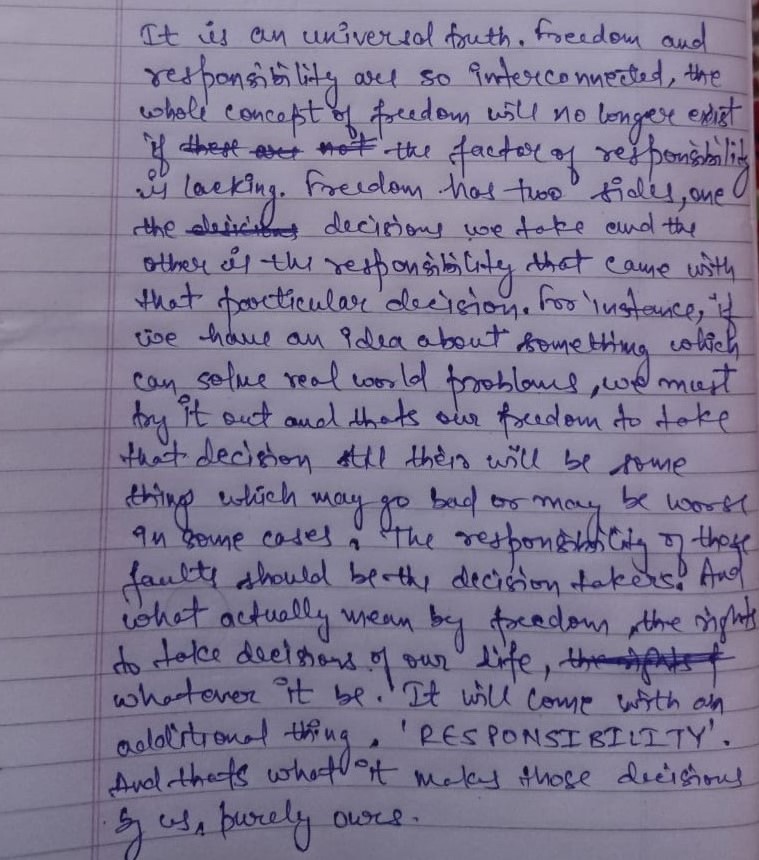 It is an universal truth. Freedom and
responsibility are so interconnected, the
whole concept of freedom will no longer exist
if these are not the factor of responsibility
is lacking. Freedom has two sides, one
the decisions decisions we take and the
other is the responsibility that came with
that particular decision. For instance, if
we have an idea about something which
can solve real world problems, we must
try it out and thats our freedom to take
that decision still there will be some
thing which may go bad or may be worse
in some cases, The responsibility of those
faults should be the decision takers. And
what actually mean by freedom, the rights
to take decisions of our life, the rights of
whatever it be. It will come with an
additional thing, 'RESPONSIBILITY'.
And thats what it makes those decisions
of us, purely ours.